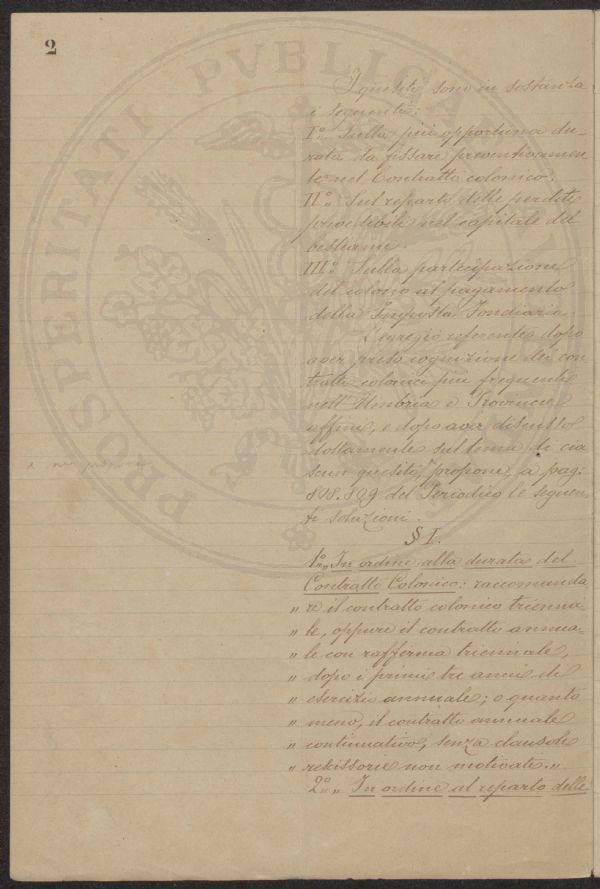 2
I quesiti sono in sostanza
i seguenti:
I.° Sulla più opportuna du-
rata da fissare preventivamen
te nel Contratto colonico.
II.° Sul reparto delle perdite
prevedibili nel capitale del
bestiame.
III.° Sulla partecipazione
del colono al pagamento
della Imposta Fondiaria.
L'egregio referente, dopo
aver preso cognizione dei con
tratti colonici più frequenti
nell'Umbria e Provincie
affini, e dopo aver discusso
dottamente sul tema di cia
scun quesito, propone, a pag:
828.829 del Periodico le seguen
ti soluzioni.
§ I.
1.° „ In ordine alla durata del
Contratto Colonico: raccomanda
„ re il contratto colonico trienna
„ le, oppure il contratto annua-
„ le con rafferma triennale,
„ dopo i primi tre anni di
„ esercizio annuale; o quanto
„ meno, il contratto annuale
„ continuativo, senza clausole
„ rescissorie non motivate. „
2.° „ In ordine al reparto delle
PROSPERITATI PVBLICAE